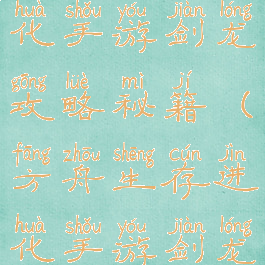 huà shǒu yóu jiàn lóng
化手游剑龙
gōng lüè mì jí
攻略秘籍（
fāng zhōu shēng cún jìn
方舟生存进
huà shǒu yóu jiàn lóng
化手游剑龙